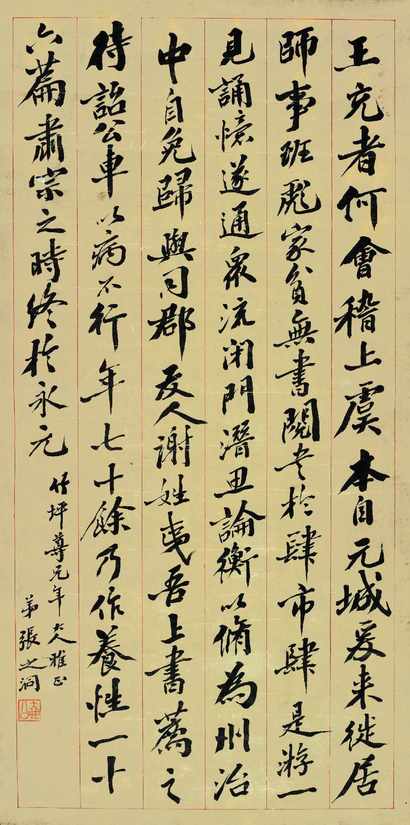 王充者何會稽上虞本自元城爰来徙居
師事班彪家貧無書閱書於肆市肆是游一
見誦憶遂通衆流闭門潛思論衡以脩為州治
中自免歸與同郡友人謝姓夷吾上書薦之
待詔公車以病不行年七十餘乃作養性一十
六篇肅宗之時終於永元
竹坪尊兄年大人雅正
弟張之洞